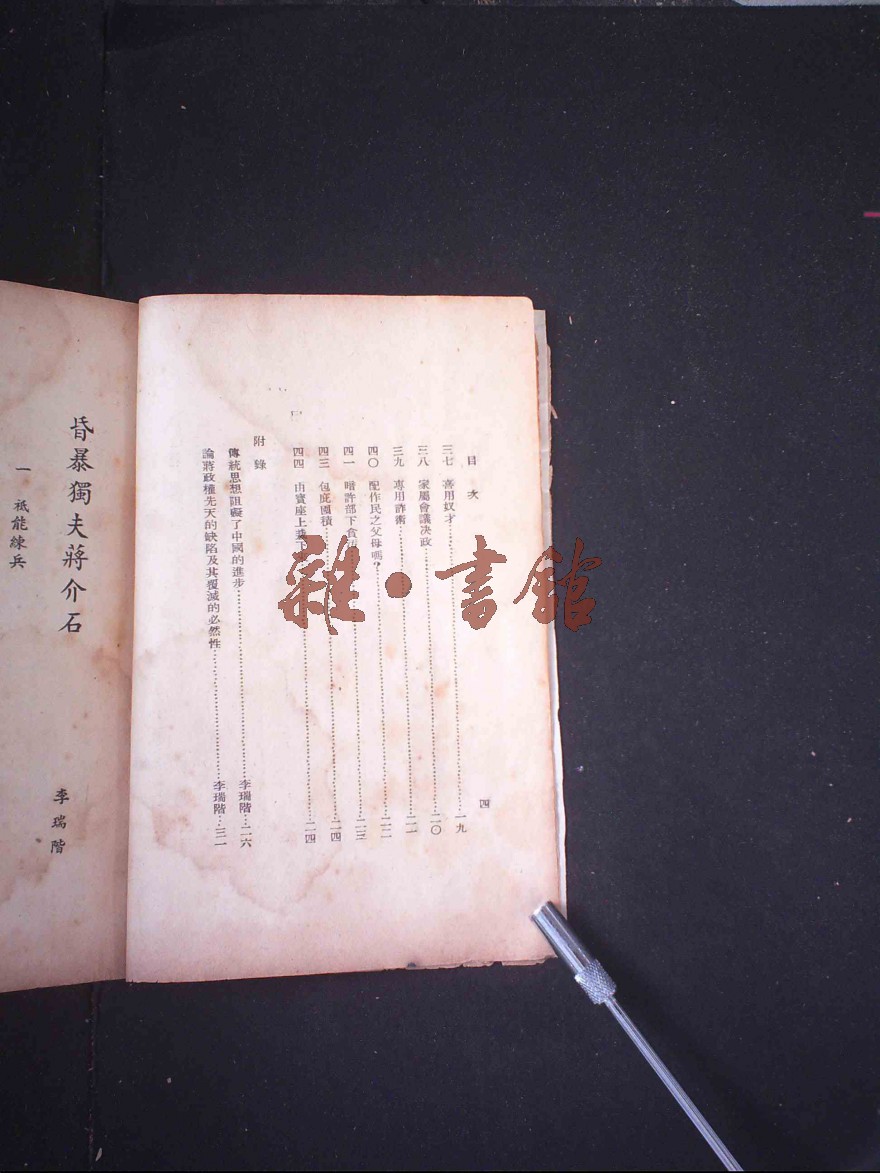 目次
四
三七 喜用奴才……一九
三八 家屬會議決政……二〇
三九 專用詐術……二一
四〇 配作民之父母嗎？……二二
四一 暗許部下貪……二三
四三 包庇囤積……二四
四四 由寶座上……下……二四
附錄
傳統思想阻礙了中國的進步……李瑞階……二六
論蔣政權先天的缺陷及其覆滅的必然性……李瑞階……三一
昏暴獨夫蔣介石
李瑞階
一 祇能練兵
雜·書館